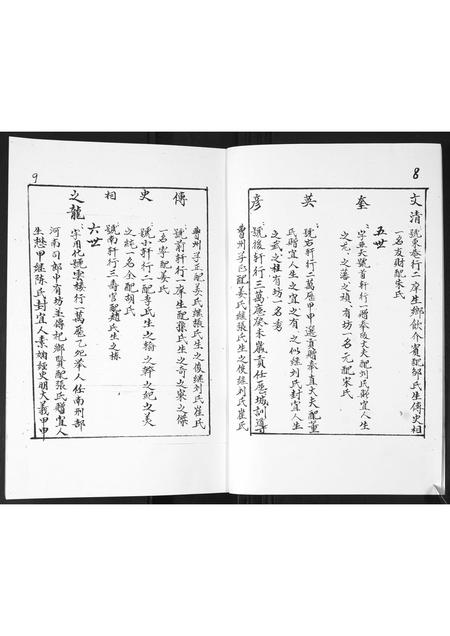 8
文清
號東菴行二庠生鄉飲介賓配邹氏生傳史相
一名友財配朱氏
五世
奎
字垂天號首軒行一贈奉政大夫配刘氏封宜人生
之元之藩之楨有坊一名元配宋氏
英
號右軒行二萬歷甲申選貢贈奉直大夫配董
氏贈宜人生之宜之有之似継刘氏封宜人生
之武之柱有坊一名秀
彦
號後軒行三萬歷癸未歲貢任應城訓導
曹州学正配姜氏継張氏生之俊継刘氏崔氏
9
曹州学正配姜氏継張氏生之俊継刘氏崔氏
傳
號前軒行一庠生配蘇氏生之奇之寀之傑
一名字配姜氏
史
號小軒行二配李氏生之翰之幹之紀之美
之純一名全配胡氏
相
號南軒行三壽官配趙氏生之棟
六世
之龍
字用化號雲樓行一萬歷乙卯举人仕南刑部
河南司郎中有坊並傳祀鄉賢配張氏贈宜人
生懋甲継陈氏封宜人素嫻經史明大義甲申